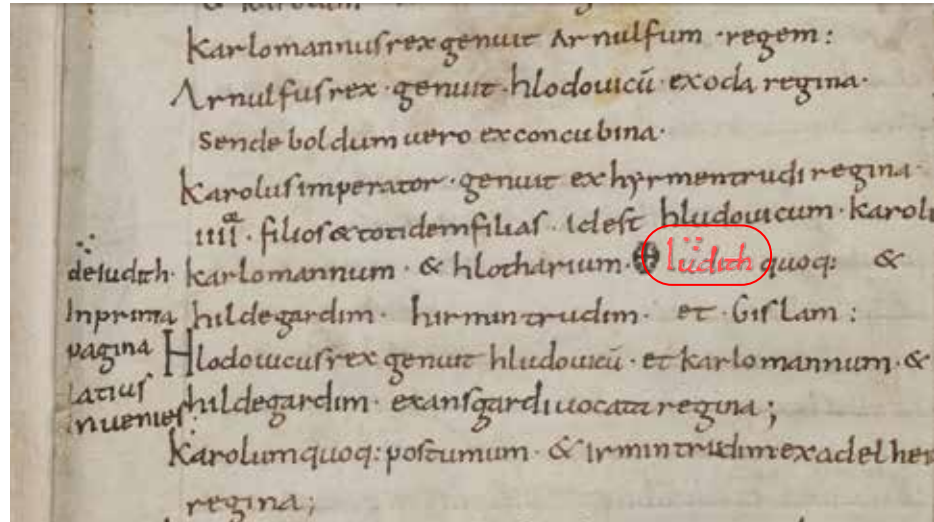 karlomannus rex genuit Arnulfum · regem :
Arnulfus rex · genuit · hlodouicū ex oda regina ·
Sendeboldum uero ex concubina ·
karolus imperator · genuit ex hyrmentrudi regina ·
iiiiᵒʳ · filios & totidem filias · Idest hludouicum · karolu
karlomannum · & hlotharium · Iudith quoq: &
hildegardim · hirmintrudim · et · Gislam :
Hlodouicus rex genuit hludouicū · et karlomannum · &
hildegardim · ex ansgardi uocata regina ;
karolum quoq: postumum · & irmintrudim ex adelhei
regina ;
de iudith ·
In prima
pagina
latius
inuenies :